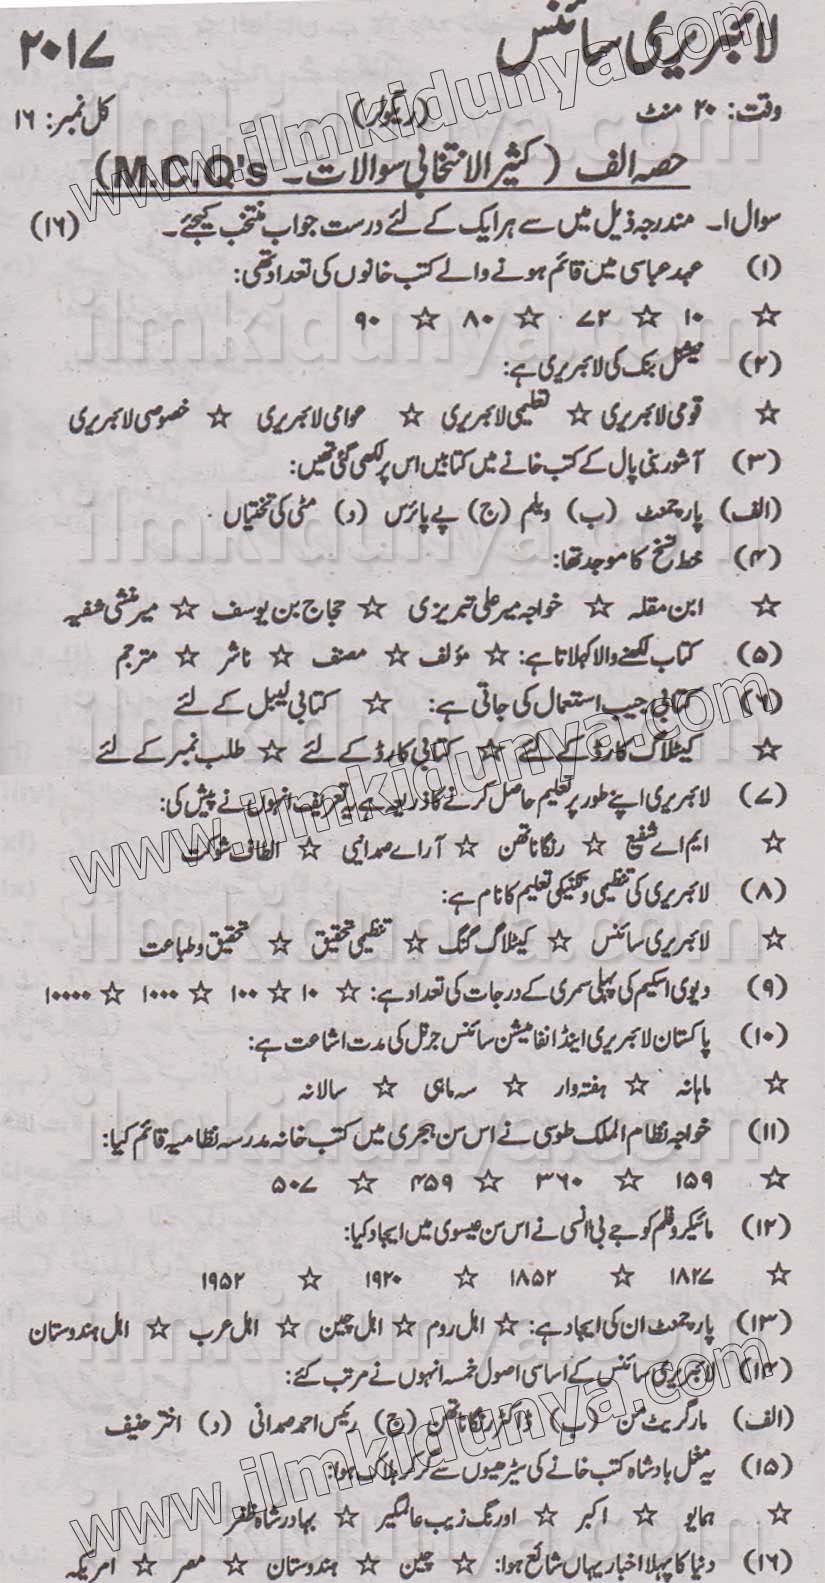 لائبریری سائنس ۲۰۱۷
وقت: ۲۰ منٹ (ریگولر) کل نمبر: ۱۶
حصہ الف (کثیر الانتخابی سوالات۔ M.C.Q's)
سوال ۱۔ مندرجہ ذیل میں سے ہر ایک کے لئے درست جواب منتخب کیجئے۔ (۱۶)
(۱) عہد عباسی میں قائم ہونے والے کتب خانوں کی تعداد تھی:
☆ ۱۰ ☆ ۷۲ ☆ ۸۰ ☆ ۹۰
(۲) نیشنل بنک کی لائبریری ہے:
☆ قومی لائبریری ☆ تعلیمی لائبریری ☆ عوامی لائبریری ☆ خصوصی لائبریری
(۳) آشور بنی پال کے کتب خانے میں کتابیں اس پر لکھی گئی تھیں:
(الف) پارچمنٹ (ب) ویلم (ج) پے پائرس (د) مٹی کی تختیاں
(۴) خط نسخ کا موجد تھا:
☆ ابن مقلہ ☆ خواجہ میر علی تبریزی ☆ حجاج بن یوسف ☆ میر منشی شفیہ
(۵) کتاب لکھنے والا کہلاتا ہے: ☆ مؤلف ☆ مصنف ☆ ناشر ☆ مترجم
(۶) کتابی جیب استعمال کی جاتی ہے: ☆ کتابی لیبل کے لئے
☆ کیٹلاگ کارڈ کے لئے ☆ کتابی کارڈ کے لئے ☆ طلب نمبر کے لئے
(۷) لائبریری اپنے طور پر تعلیم حاصل کرنے کا ذریعہ ہے یہ تعریف انہوں نے پیش کی:
☆ ایم اے شفیع ☆ رنگا ناتھن ☆ آر اے صمدانیی ☆ الطاف شوکت
(۸) لائبریری کی تنظیمی و تکنیکی تعلیم کا نام ہے:
☆ لائبریری سائنس ☆ کیٹلاگ گنگ ☆ تنظیمی تحقیق ☆ تحقیق و طباعت
(۹) دیوی اسکیم کی پہلی سمری کے درجات کی تعداد ہے: ☆ ۱۰ ☆ ۱۰۰ ☆ ۱۰۰۰ ☆ ۱۰۰۰۰
(۱۰) پاکستان لائبریری اینڈ انفامیشن سائنس جرنل کی مدت اشاعت ہے:
☆ ماہانہ ☆ ہفتہ وار ☆ سہ ماہی ☆ سالانہ
(۱۱) خواجہ نظام الملک طوسی نے اس سن ہجری میں کتب خانہ مدرسہ نظامیہ قائم کیا:
☆ ۱۵۹ ☆ ۳۶۰ ☆ ۴۵۹ ☆ ۵۰۷
(۱۲) مائیکروفلم کو جے بی انسی نے اس سن عیسوی میں ایجاد کیا:
☆ ۱۸۲۷ ☆ ۱۸۵۲ ☆ ۱۹۲۰ ☆ ۱۹۵۲
(۱۳) پارچمنٹ ان کی ایجاد ہے: ☆ اہل روم ☆ اہل چین ☆ اہل عرب ☆ اہل ہندوستان
(۱۴) لائبریری سائنس کے اساسی اصول خمسہ انہوں نے مرتب کئے:
(الف) مارگریٹ من (ب) ڈاکٹر رنگا ناتھن (ج) رئیس احمد صمدانی (د) اختر حنیف
(۱۵) یہ مغل بادشاہ کتب خانے کی سیڑھیوں سے گر کر ہلاک ہوا:
☆ ہمایو ☆ اکبر ☆ اورنگ زیب عالمگیر ☆ بہادر شاہ ظفر
(۱۶) دنیا کا پہلا اخبار یہاں شائع ہوا: ☆ چین ☆ ہندوستان ☆ مصر ☆ امریکہ
www.ilmkidunya.com
ilmkidunya.com
ilmkidunya.com
ilmkidunya.com
www.ilmkidunya.com
ilmkidunya.com
ilmkidunya.com
ilmkidunya.com
www.ilmkidunya.com
ilmkidunya.com